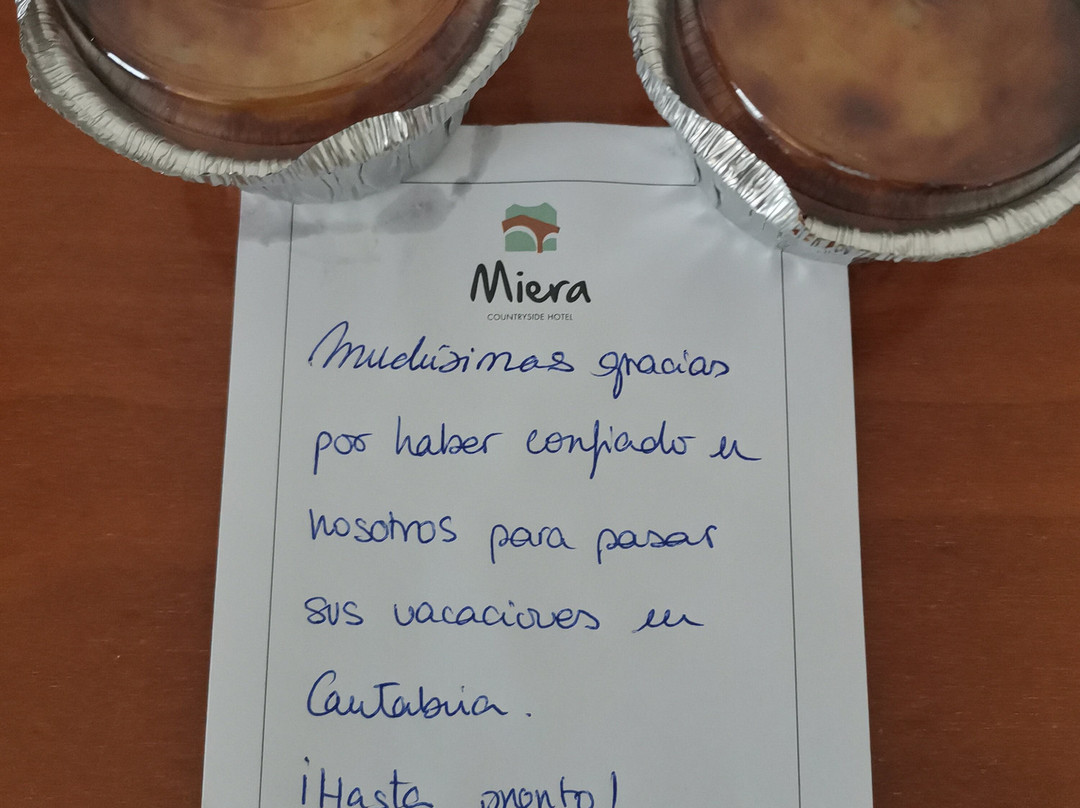 Miera
COUNTRYSIDE HOTEL
Muchísimas gracias
por haber confiado en
nosotros para pasar
sus vacaciones en
Cantabria.
¡Hasta pronto!